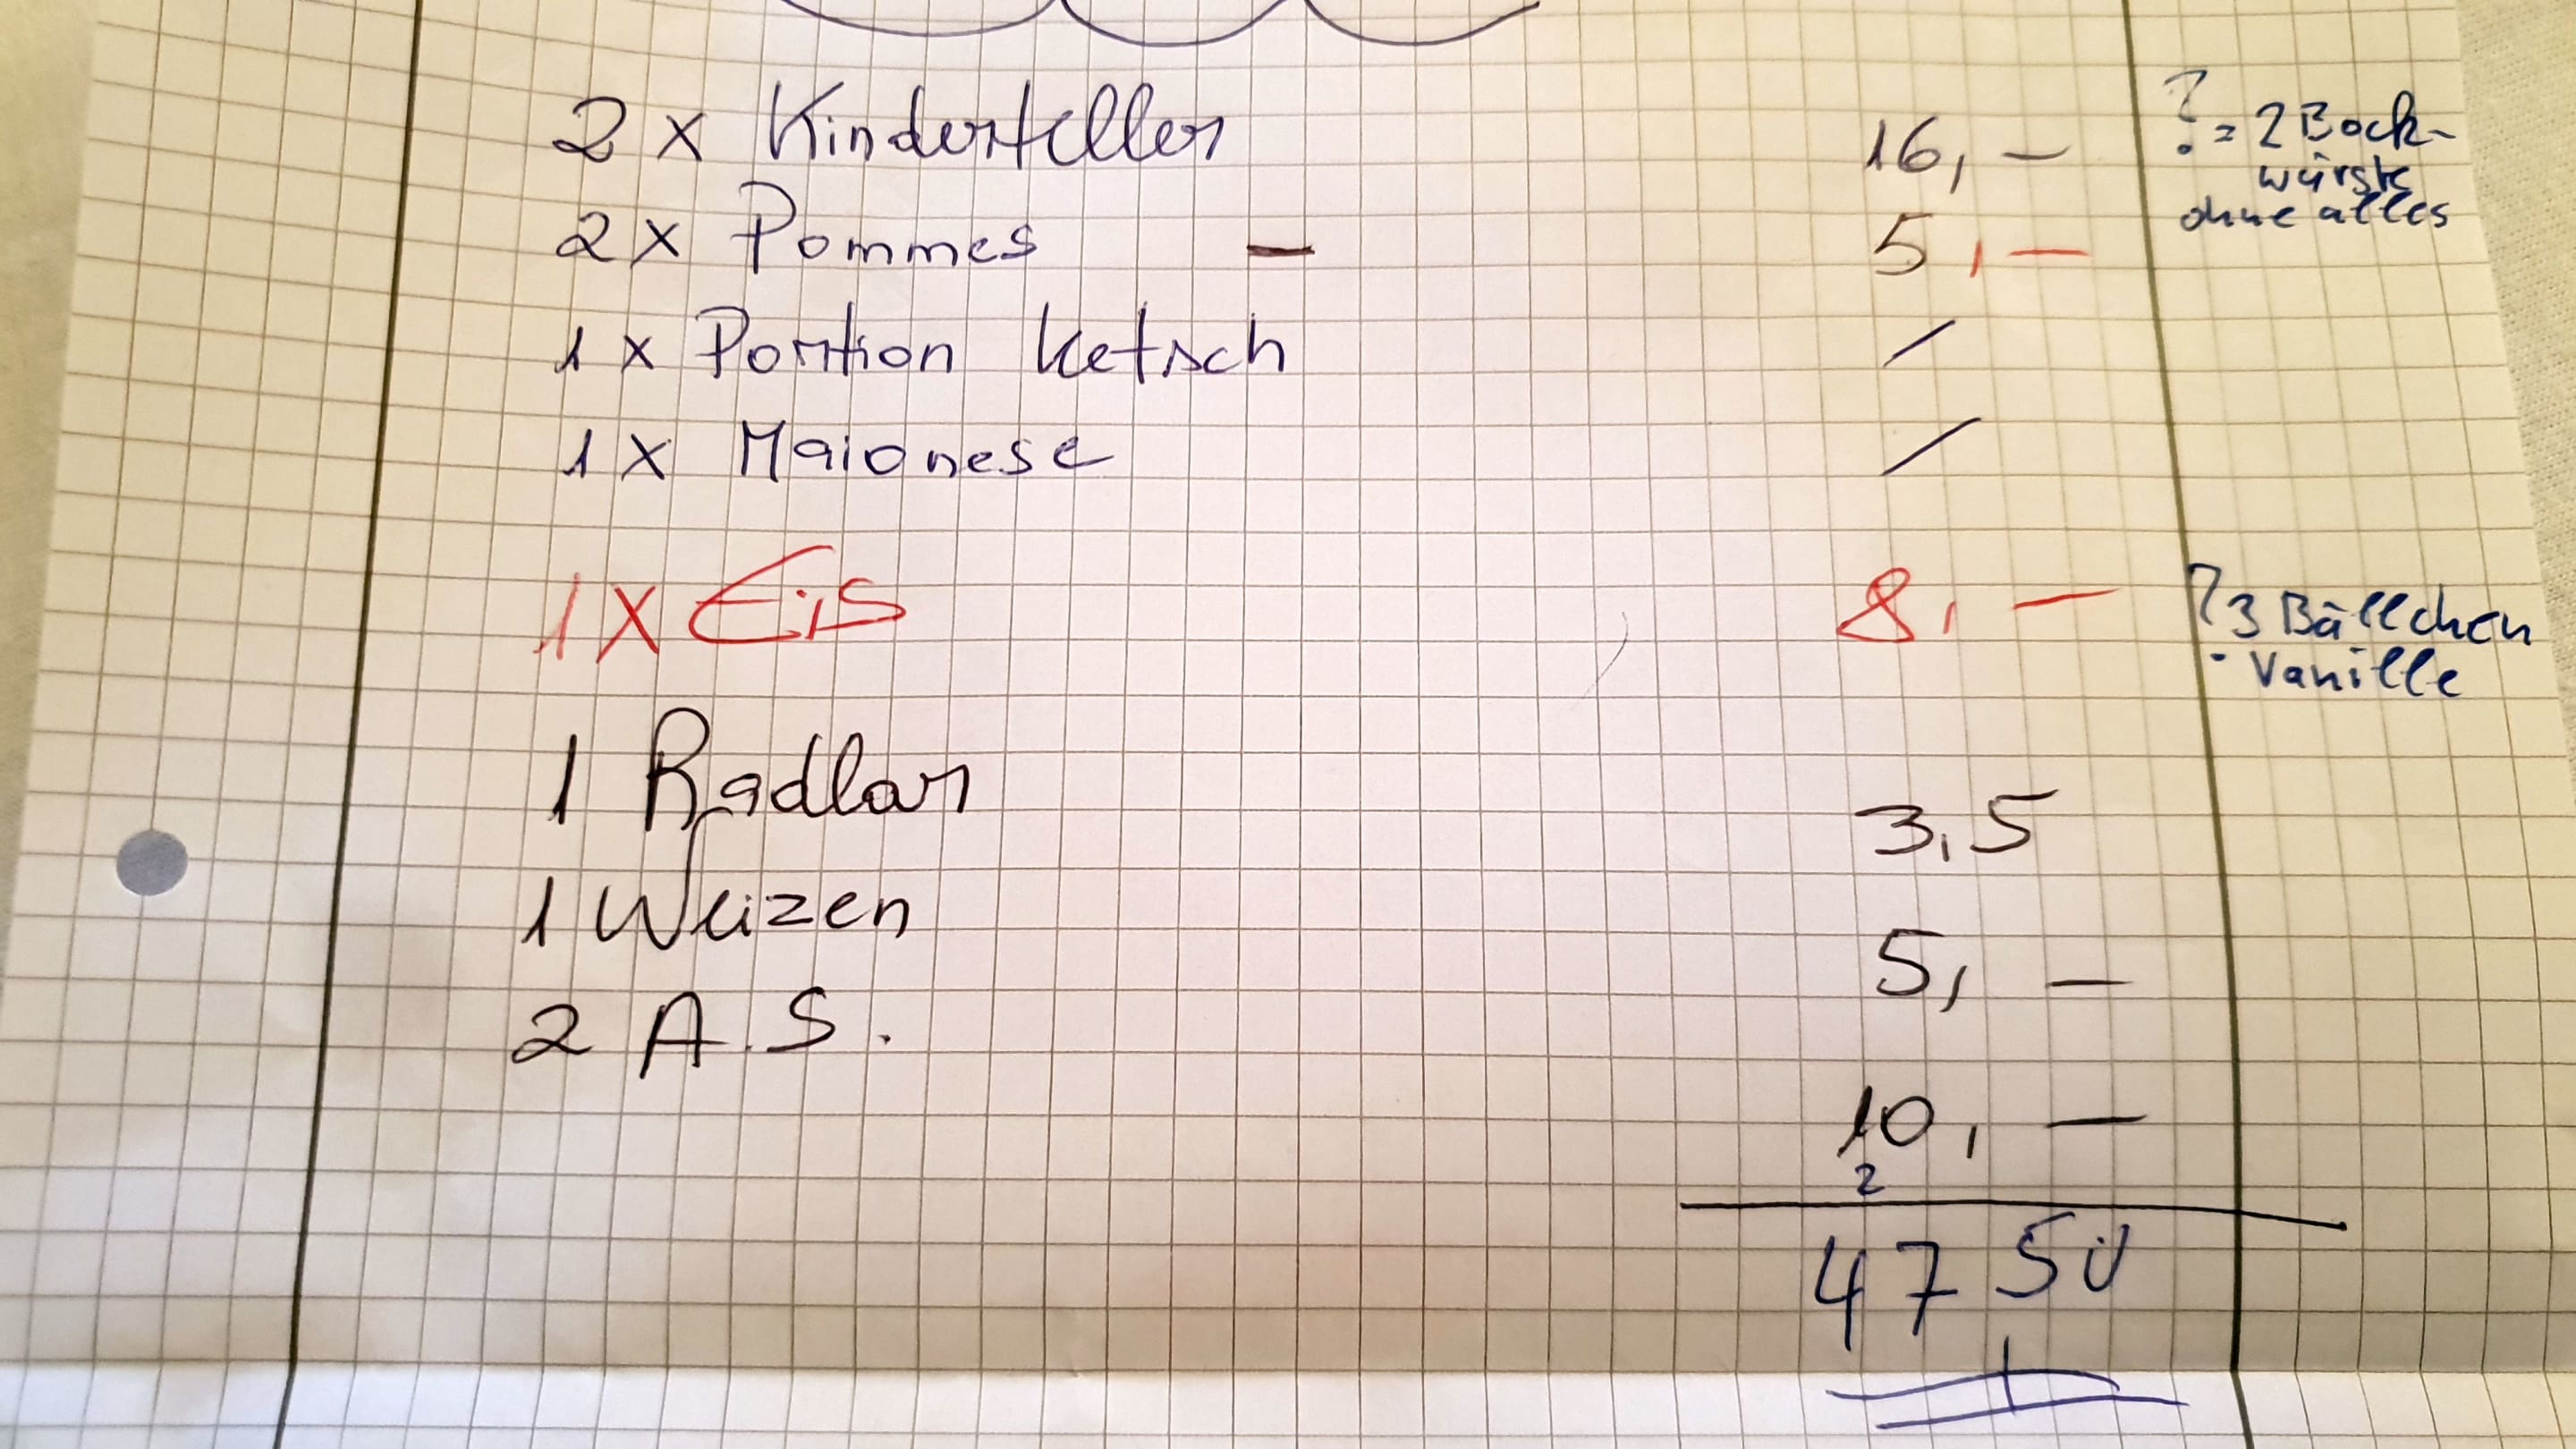 2 x Kinderteller 16,- ? = 2 Bock-
würste
ohne alles
2 x Pommes - 5,-
1 x Portion Ketsch /
1 x Maionese /
1 x Eis 8,- ? 3 Bällchen
Vanille
1 Radlar 3,5
1 Weizen 5,-
2 A.S. 10,-
2
47 50